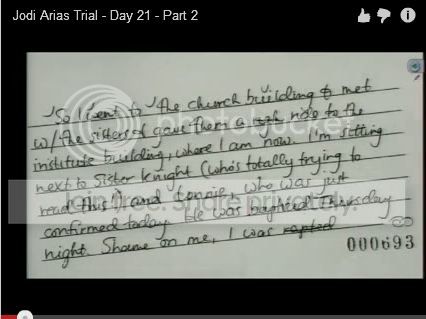 Jodi Arias Trial - Day 21 - Part 2
So I went to the church building & met
w/ the sisters & gave them a ride to the
institute building, where I am now. I'm sitting
next to Sister Knight (who's totally trying to
read this!) and who was just
confirmed today. He was baptized Thursday
night. Shame on me, I was
000693
photobucket
share privately.